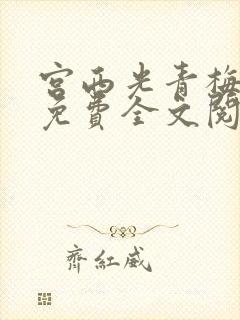 宫西光青梅
免費全文閱
齊紅威